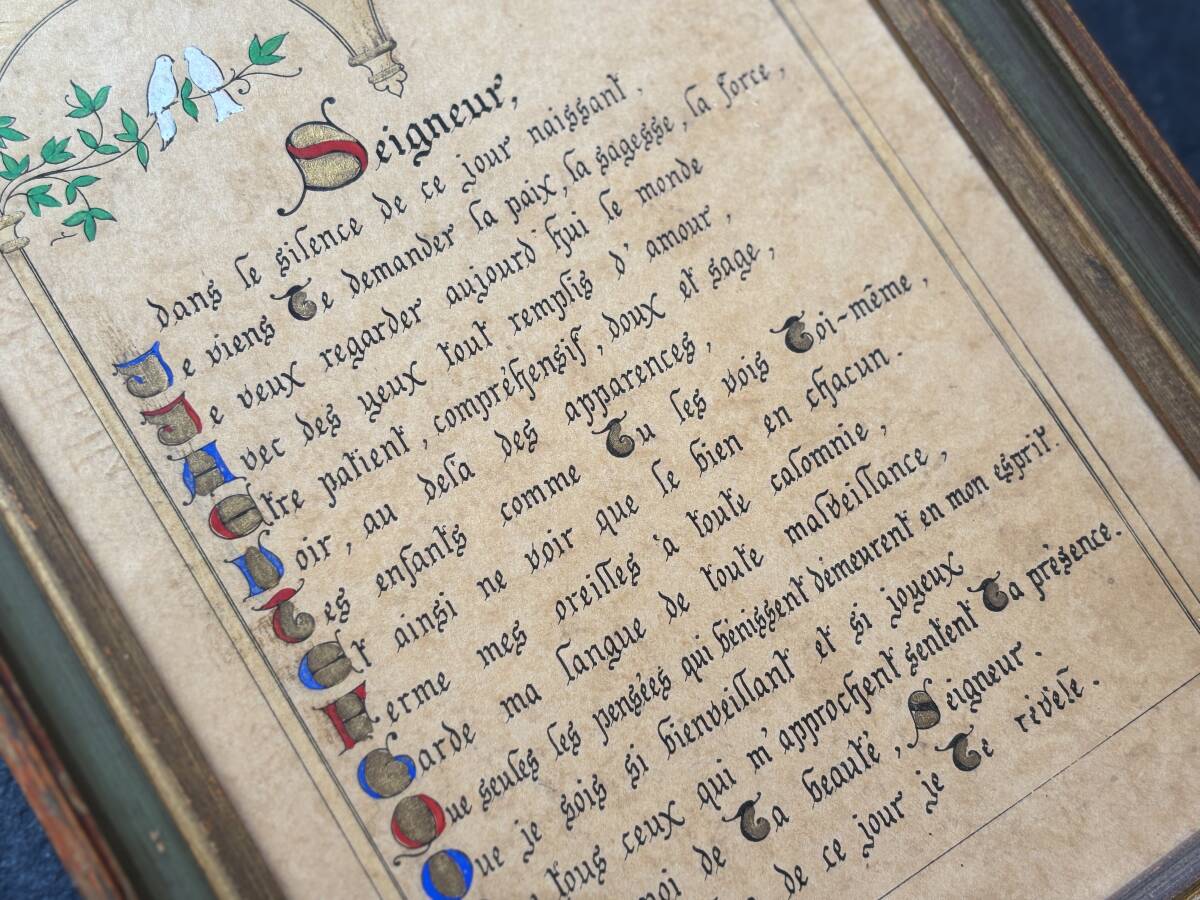 Seigneur,
dans le silence de ce jour naissant,
Je viens Te demander la paix, la sagesse, la force,
Je veux regarder aujourd'hui le monde
Avec des yeux tout remplis d'amour,
Etre patient, compréhensif, doux et sage,
Voir, au delà des apparences,
Tes enfants comme Tu les vois Toi-même,
Et ainsi ne voir que le bien en chacun.
Ferme mes oreilles à toute calomnie,
Garde ma langue de toute malveillance,
Que seules les pensées qui bénissent demeurent en mon esprit.
Que je sois si bienveillant et si joyeux
tous ceux qui m'approchent sentent Ta présence.
moi de Ta beauté, Seigneur.
de ce jour je Te révèle.